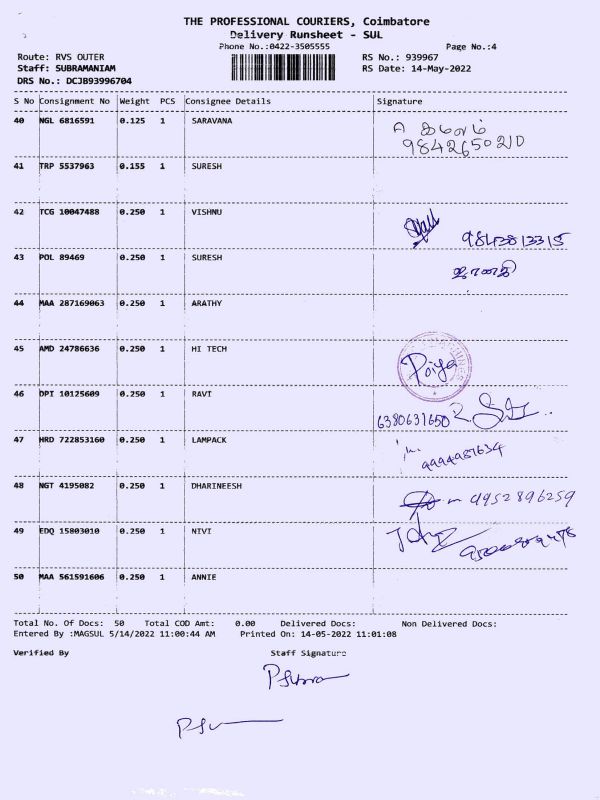 THE PROFESSIONAL COURIERS, Coimbatore
Delivery Runsheet - SUL
Phone No.:0422-3505555 Page No.:4
Route: RVS OUTER RS No.: 939967
Staff: SUBRAMANIAM RS Date: 14-May-2022
DRS No.: DCJB93996704
S No Consignment No Weight PCS Consignee Details Signature
40 NGL 6816591 0.125 1 SARAVANA
9842650210
41 TRP 5537963 0.155 1 SURESH
42 TCG 10047488 0.250 1 VISHNU
9843813315
43 POL 89469 0.250 1 SURESH
44 MAA 287169063 0.250 1 ARATHY
45 AMD 24786636 0.250 1 HI TECH
46 DPI 10125609 0.250 1 RAVI
6380631650
47 HRD 722853160 0.250 1 LAMPACK
9994987634
48 NGT 4195082 0.250 1 DHARINEESH
9952896259
49 EDQ 15803010 0.250 1 NIVI
50 MAA 561591606 0.250 1 ANNIE
Total No. Of Docs: 50 Total COD Amt: 0.00 Delivered Docs: Non Delivered Docs:
Entered By :MAGSUL 5/14/2022 11:00:44 AM Printed On: 14-05-2022 11:01:08
Verified By Staff Signature